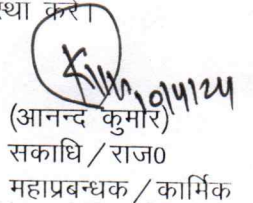 स्था करे।
10/4/24
(आनन्द कुमार)
सकाधि / राज0
महाप्रबन्धक / कार्मिक